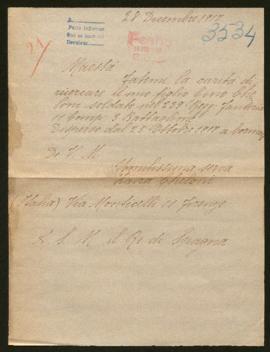 28 Decembre 1917
3534
A
Pase Informe
Maestà
Fatemi la carità di
ricercare il mio figlio Gino
soldato nel 239 Regg. Fanteria
11 Comp. 3 Battaglione
Disperso dal 25 Ottobre 1917 a
Di V. M.
serva
(Italia) Via Monticelli 11 Firenze
A S. M. il Re di Spagna